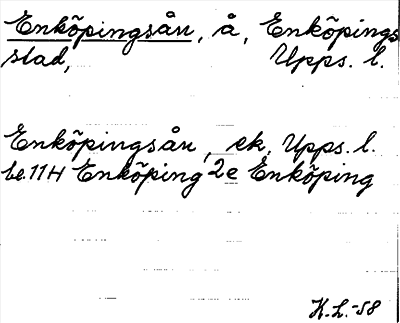 Enköpingsån, å, Enköpings
stad, Upps. l.
Enköpingsån, ek. Upps. l.
be. 11H Enköping 2e Enköping
K.L.-58